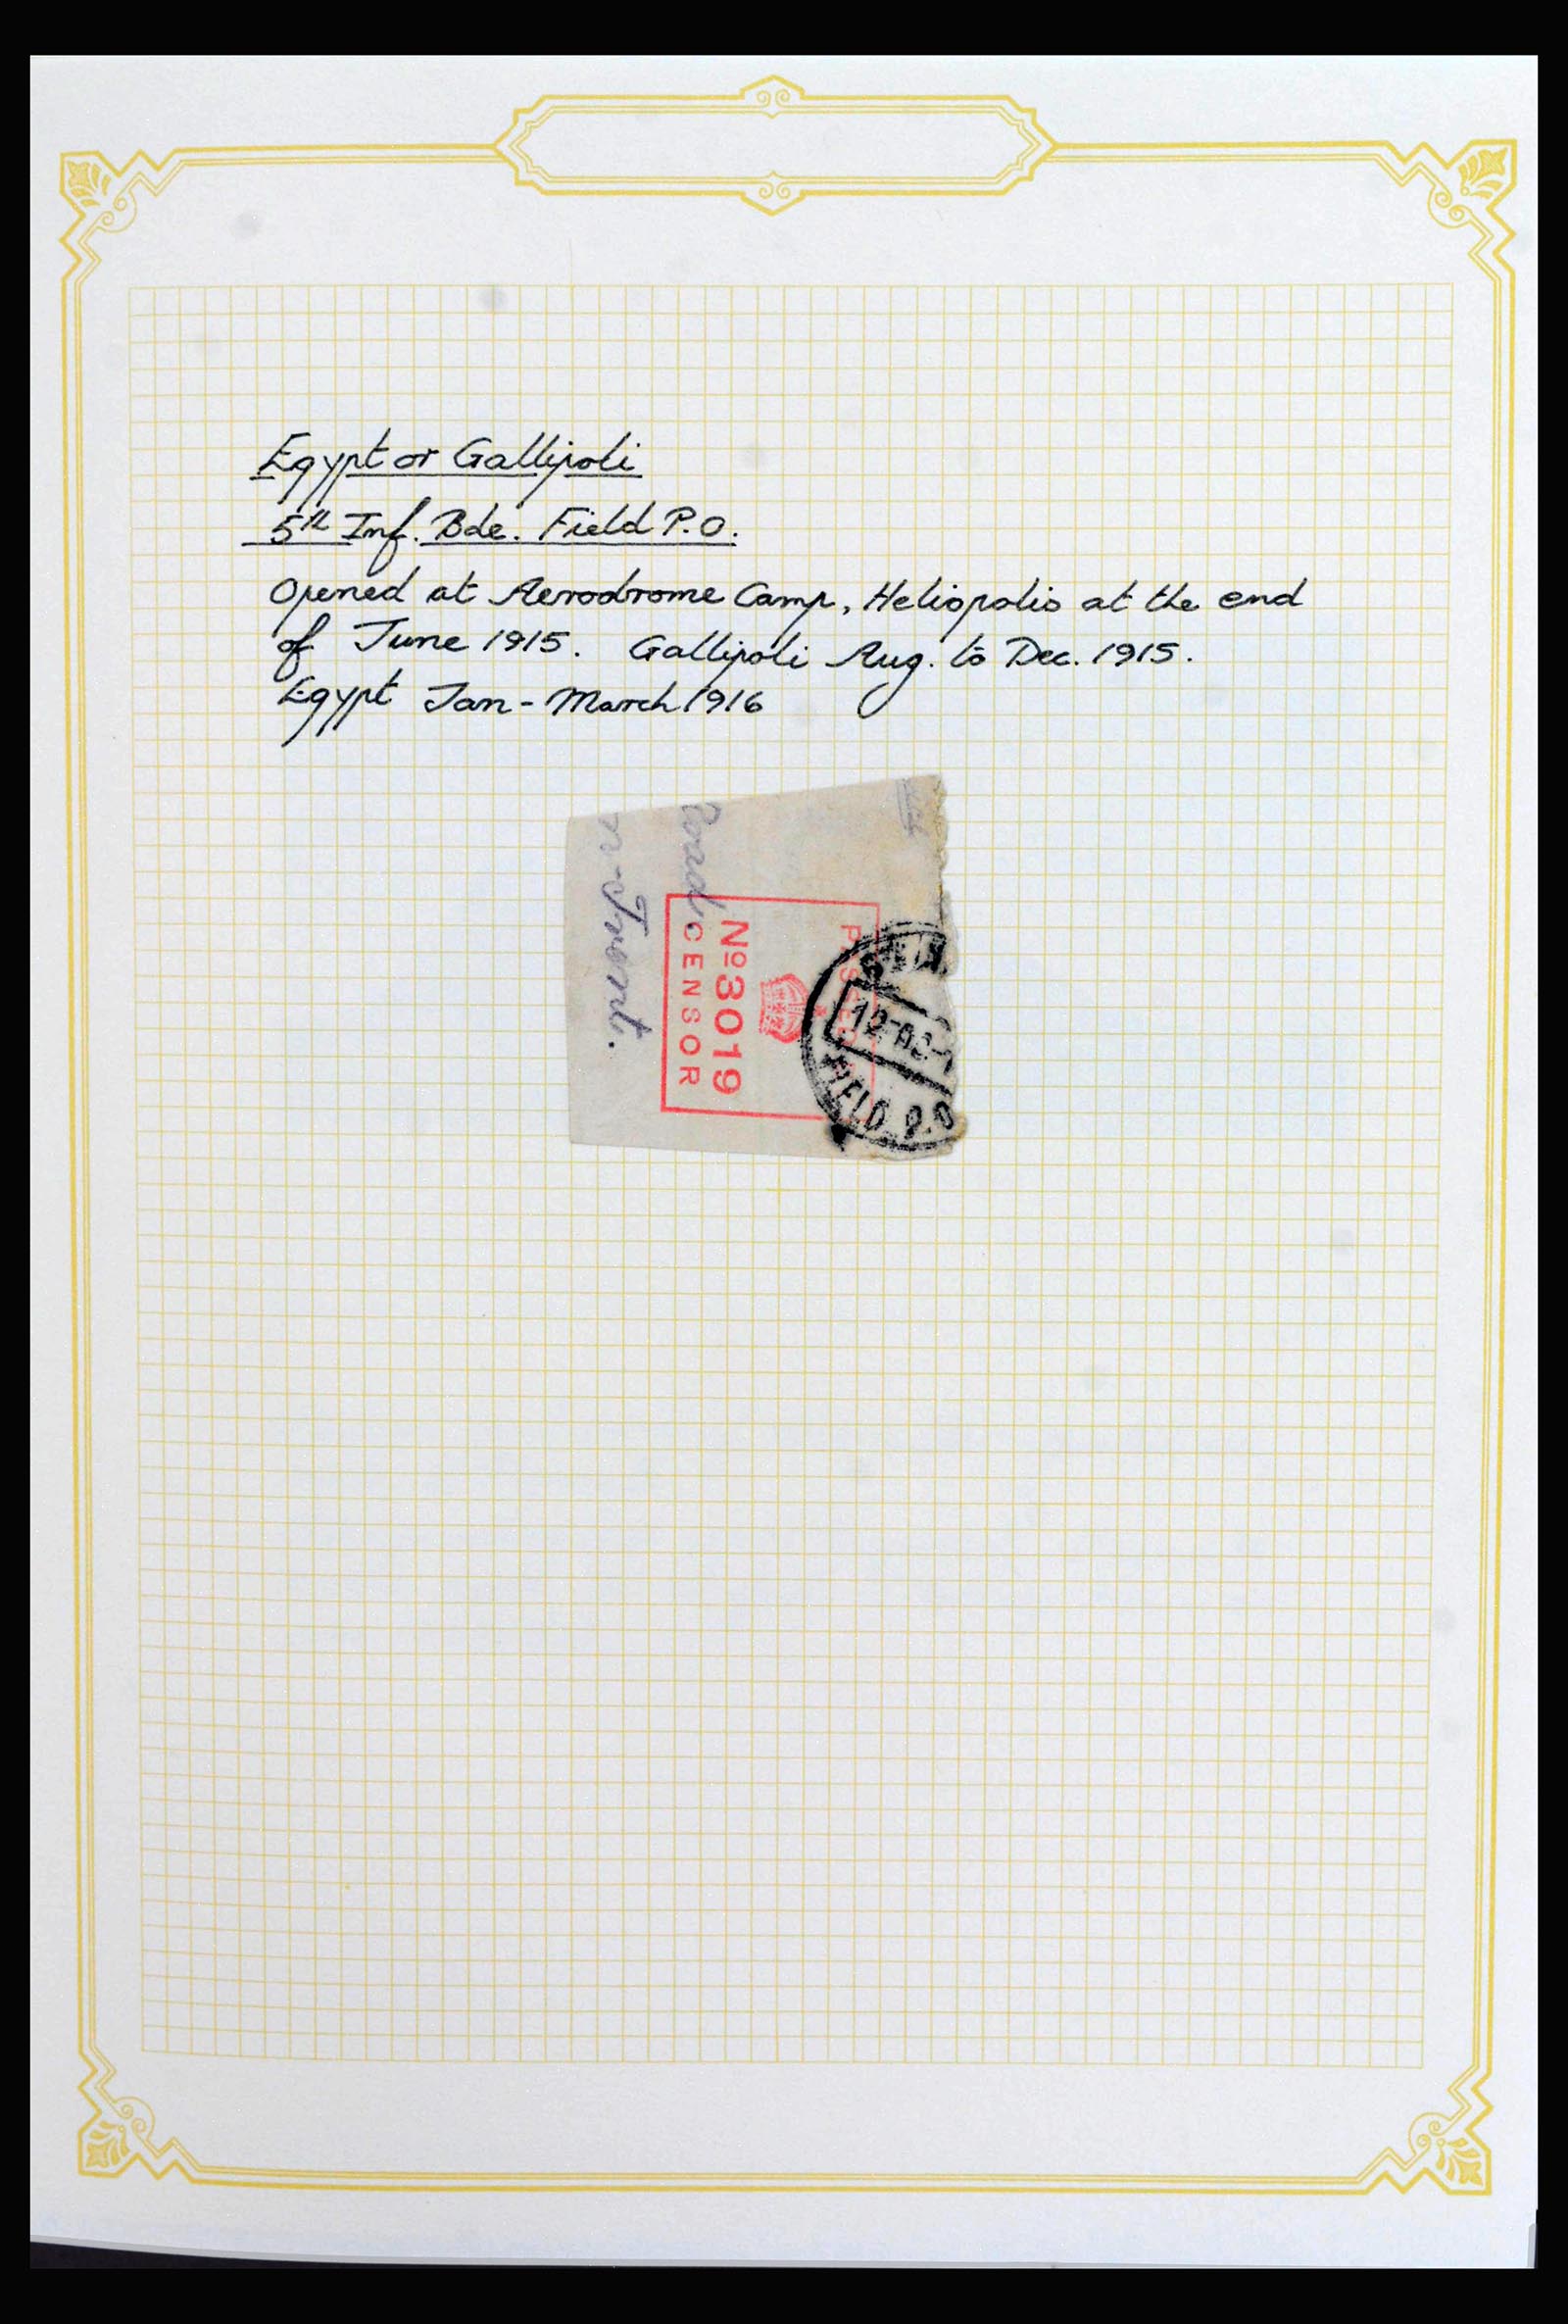 Egypt or Gallipoli
5th Inf. Bde. Field P.O.
Opened at Aerodrome Camp, Heliopolis at the end
of June 1915. Gallipoli Aug. to Dec. 1915.
Egypt Jan - March 1916
PASSED
Nº 3019
CENSOR
FIELD P.O